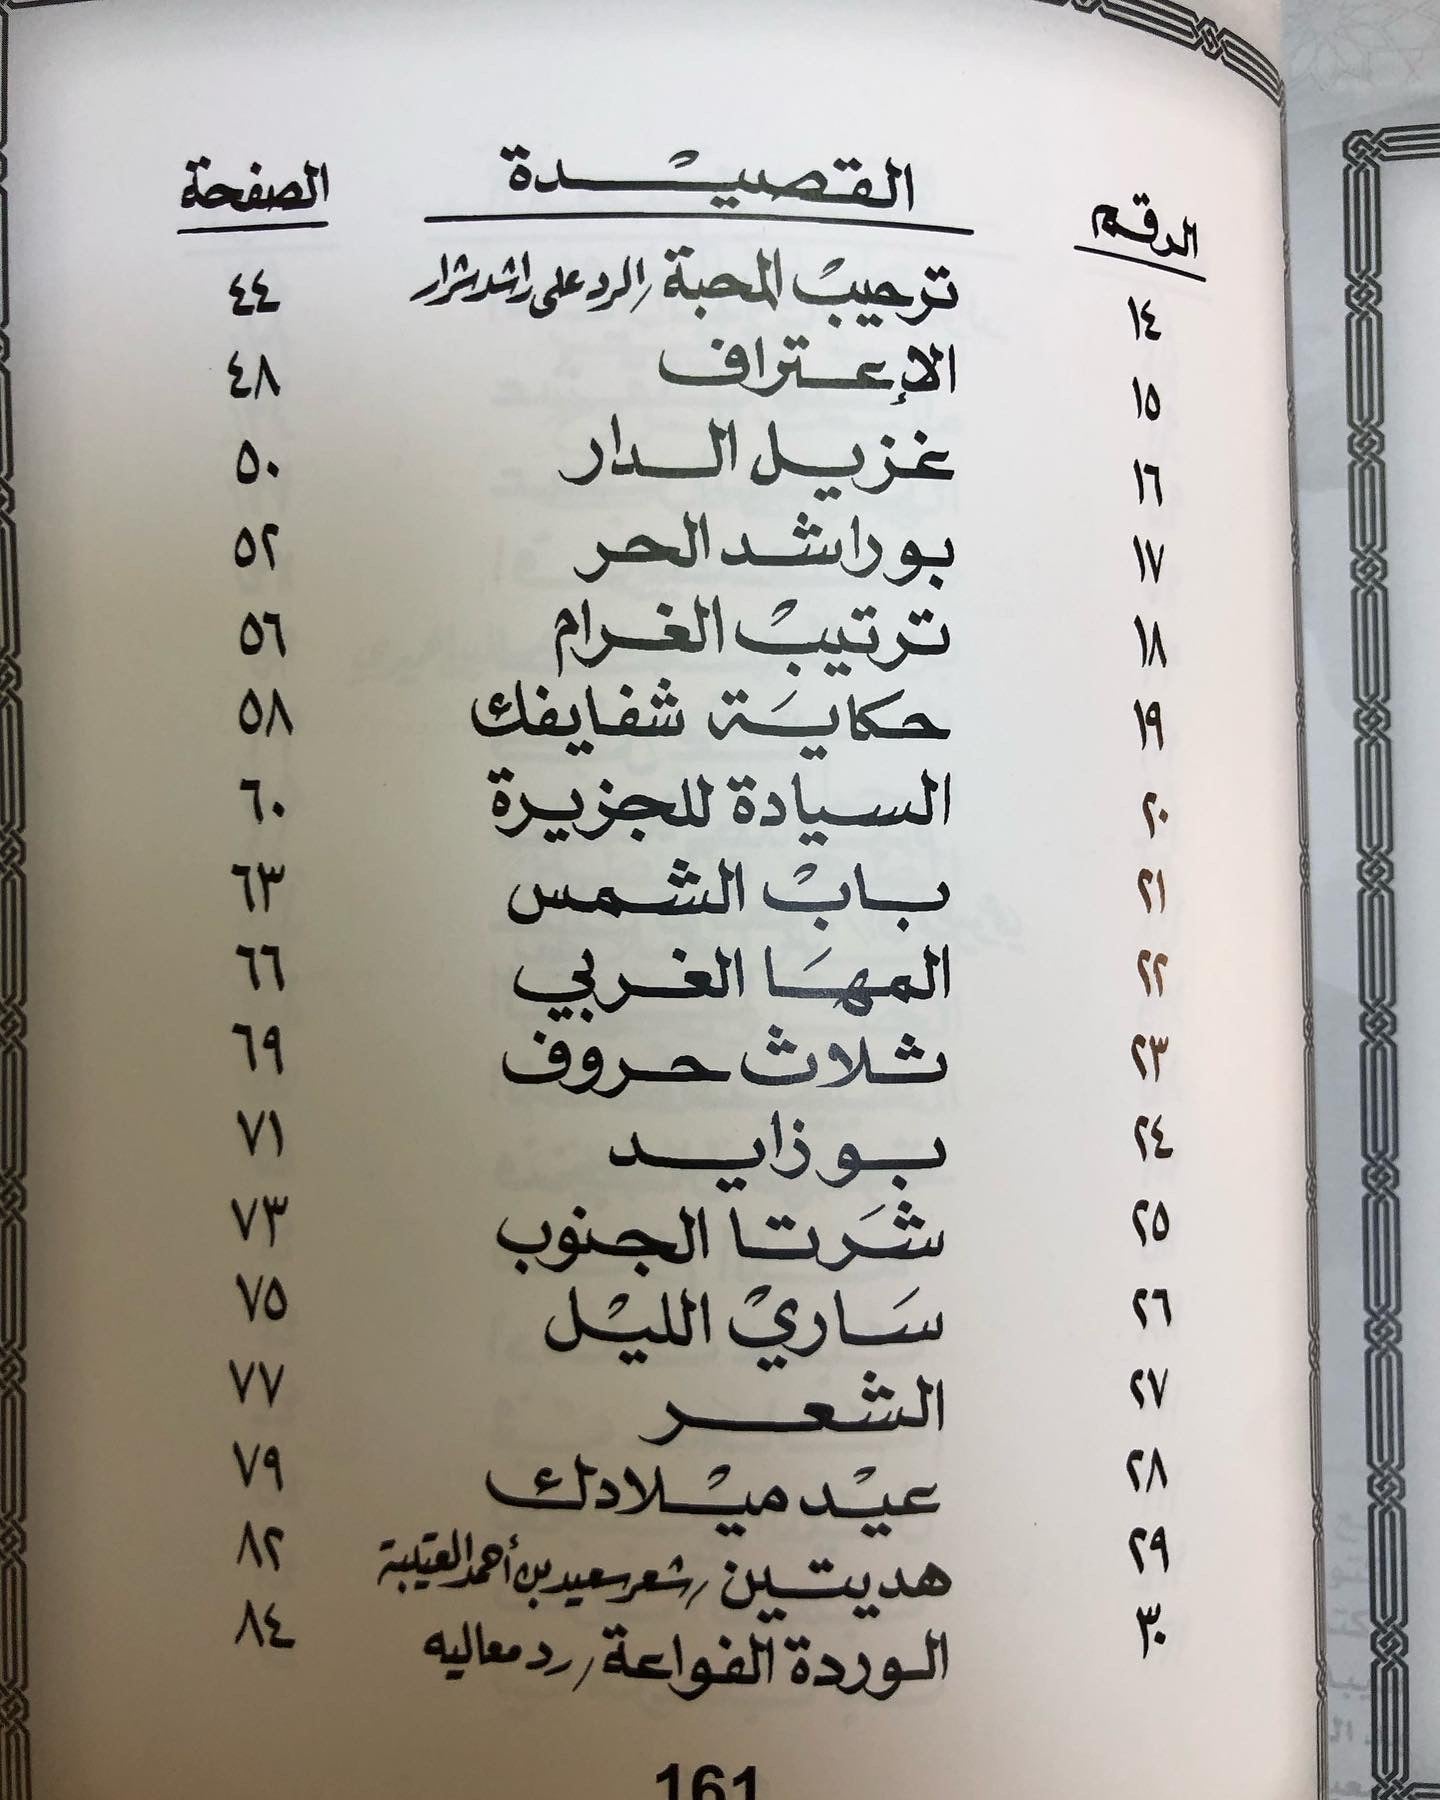 الرقم القصيدة الصفحة
١٤ ترحيبْ المحبة / الرد على راشد شرار ٤٤
١٥ الإعتراف ٤٨
١٦ غزيل الدار ٥٠
١٧ بوراشد الحر ٥٢
١٨ ترتيبْ الغرام ٥٦
١٩ حكايَة شفايفك ٥٨
٢٠ السيادة للجزيرة ٦٠
٢١ بابْ الشمس ٦٣
٢٢ المهَا الغربي ٦٦
٢٣ ثلاث حروف ٦٩
٢٤ بوزايد ٧١
٢٥ شَرتا الجنوب ٧٣
٢٦ سَاريْ الليْل ٧٥
٢٧ الشعر ٧٧
٢٨ عيْد ميْلادك ٧٩
٢٩ هديتين / شعر سعيد بن أحمد العتيبة ٨٢
٣٠ الوردة الفواعة / رد معاليه ٨٤
161